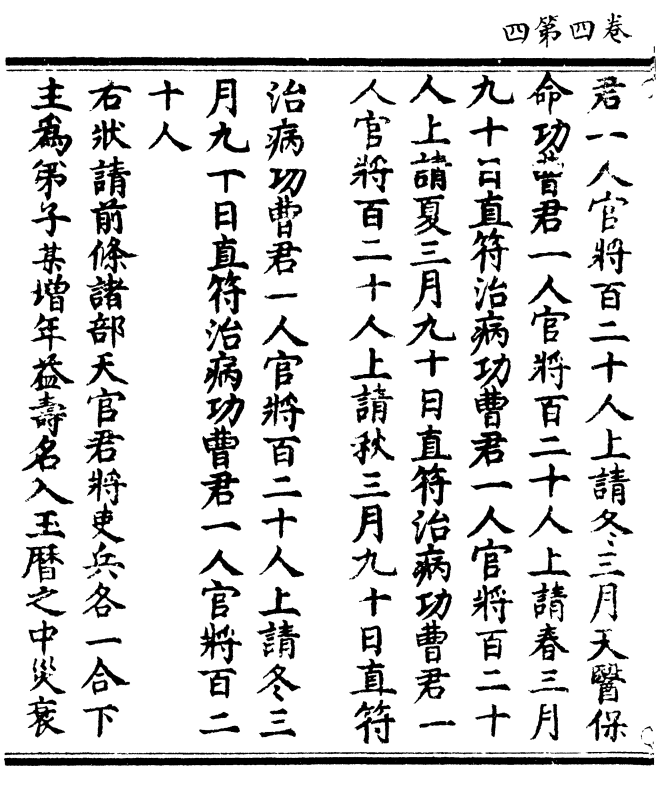 卷四第四
君一人官將百二十人上請冬三月天醫保
命功曹君一人官將百二十人上請春三月
九十日直符治病功曹君一人官將百二十
人上請夏三月九十日直符治病功曹君一
人官將百二十人上請秋三月九十日直符
治病功曹君一人官將百二十人上請冬三
月九十日直符治病功曹君一人官將百二
十人
右狀請前條諸部天官君將吏兵各一合下
主爲弟子某增年益壽名入玉曆之中災衰